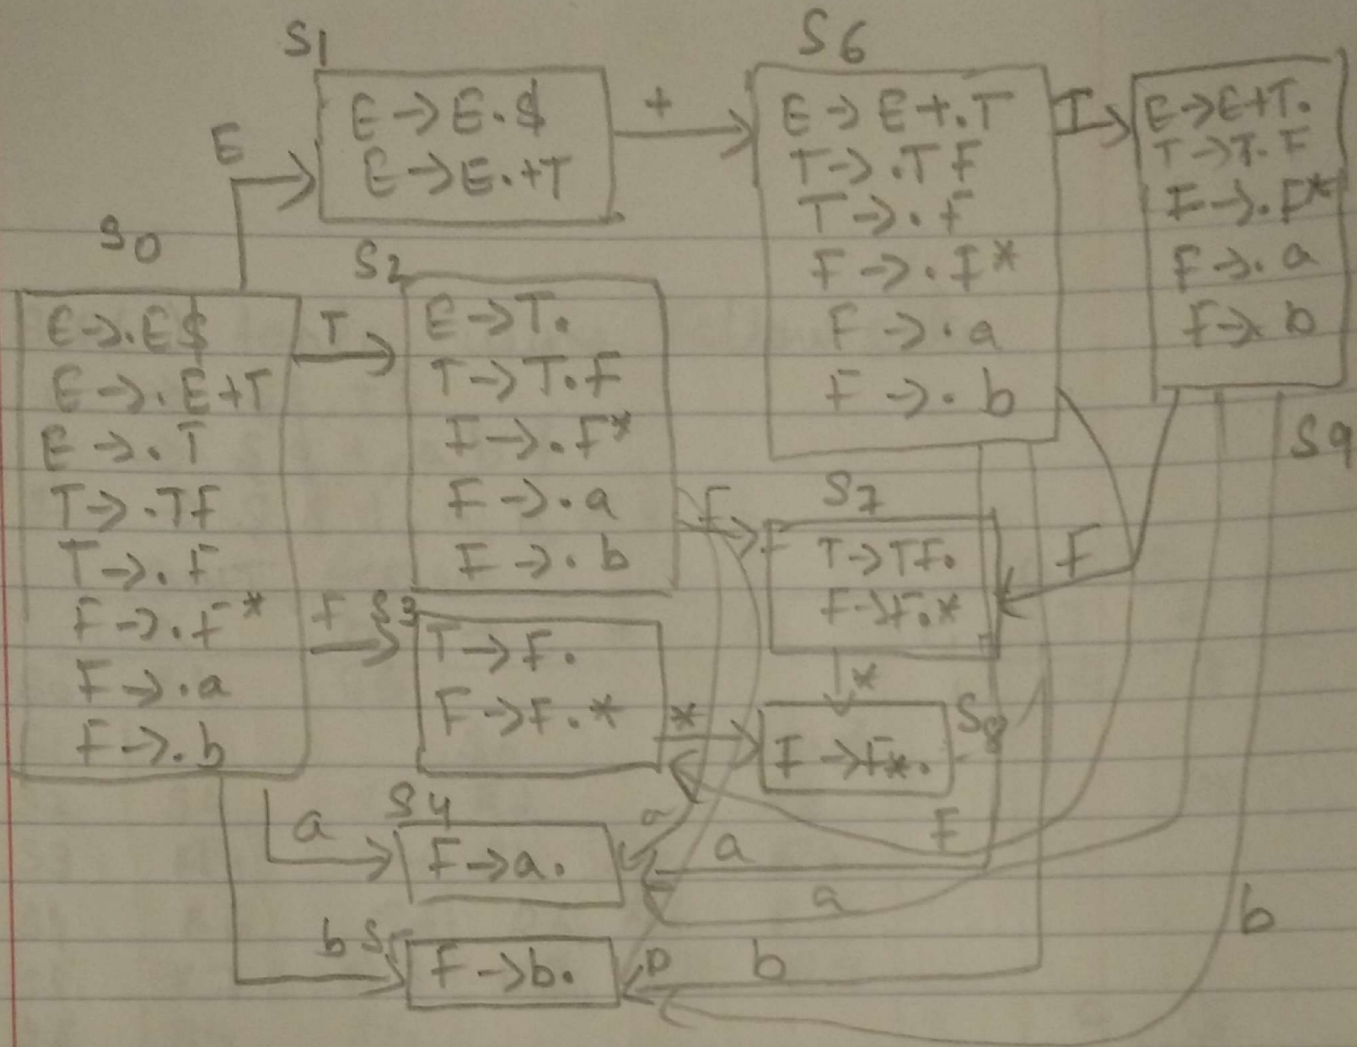 S1
E→E.$
E→E.+T
+
S6
E→E+.T
T→.TF
T→.F
F→.F*
F→.a
F→.b
T
E→E+T.
T→T.F
F→.F*
F→.a
F→.b
S9
E
S0
E→.E$
E→.E+T
E→.T
T→.TF
T→.F
F→.F*
F→.a
F→.b
T
S2
E→T.
T→T.F
F→.F*
F→.a
F→.b
F
S7
T→TF.
F→F.*
F
F
S3
T→F.
F→F.*
*
*
F→F*.
S8
F
a
S4
F→a.
a
a
a
b
S5
F→b.
b
b
b